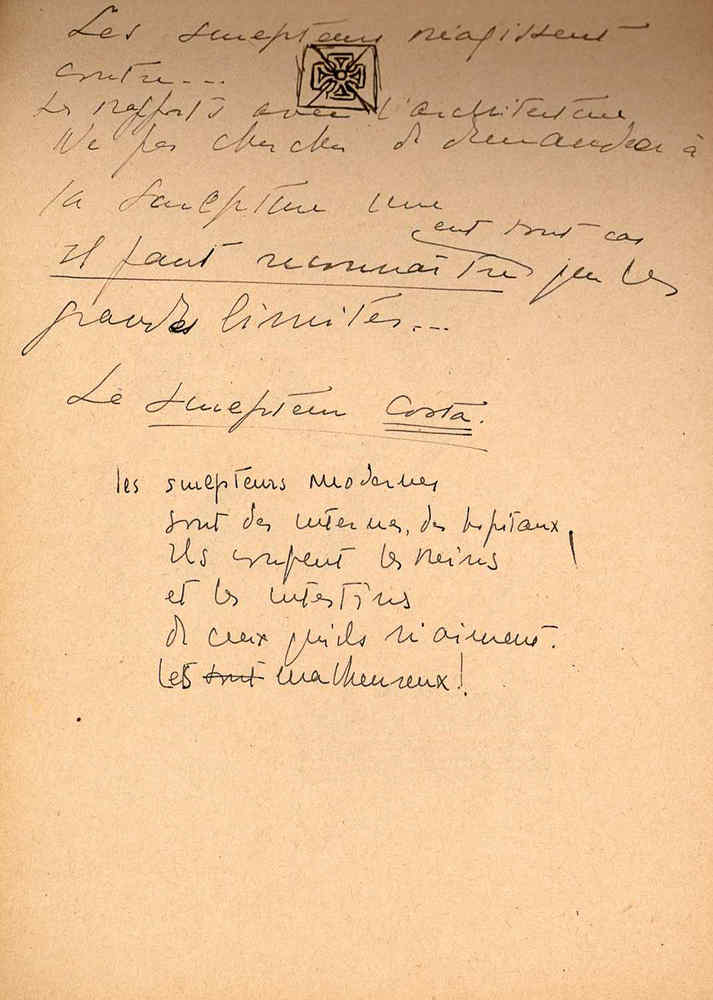 Les sculpteurs réagissent
contre...
Les rapports avec l'architecture
Ne pas chercher à demander à
la sculpture une
en tout cas
Il faut reconnaître que les
grandes limites...
Le sculpteur Costa.
les sculpteurs modernes
sont des internes, des hopitaux,
Ils coupent les reins
et les intestins
de ceux qu'ils n'aiment.
Les sont malheureux!